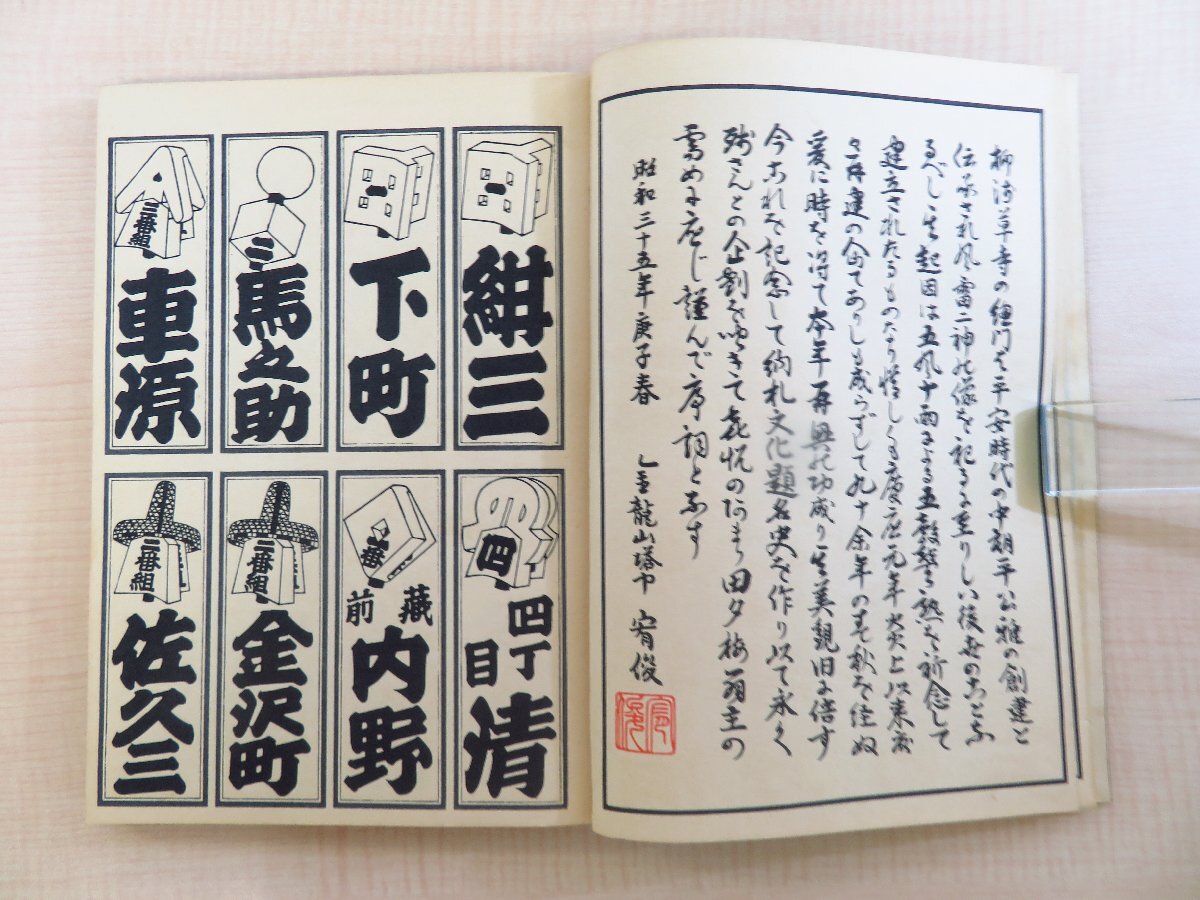 柳浅草寺の総門は平安時代の中期平公雅の創建と
伝承され風雷二神の像を祀るに至りしハ後世のことな
るべし其起因は五風十雨による五穀豊熟を祈念して
建立されたるものなり惜しくも慶応元年炎上以来
再建の企てありしも成らずして九十余年の春秋を住ぬ
爰に時を得て本年再興の功成り其美観旧に倍す
今これを記念して納札文化題名史を作り以て永く
残さんとの企劃を聞きて喜悦のあまり田夕梅翁主の
需めに応じ謹んで序詞となす
昭和三十五年庚子春
金龍山塔中 宥俊
紺三
下町
馬之助
三番組
車源
四
四丁目
清
二番
蔵前
内野
二番組
金沢町
二番組
佐久三